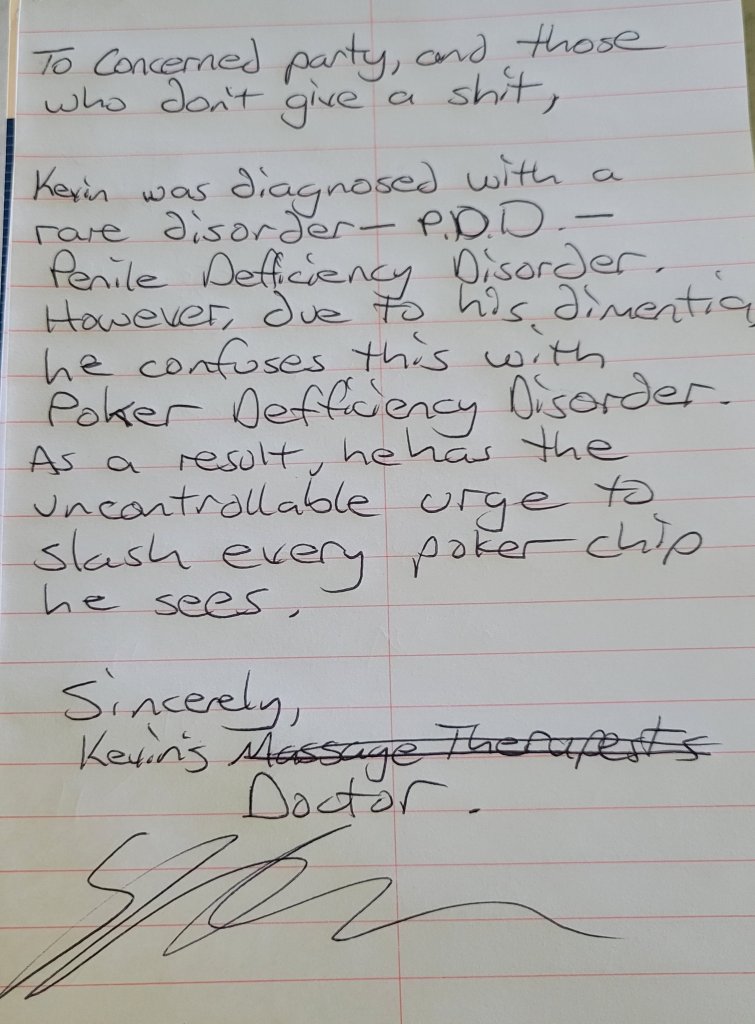 To Concerned party, and those
who don't give a shit,
Kevin was diagnosed with a
rare disorder— P.D.D. —
Penile Defficiency Disorder.
However, due to his dimentia
he confuses this with
Poker Defficiency Disorder.
As a result, he has the
uncontrollable urge to
slash every poker chip
he sees.
Sincerely,
Kevin's Massage Therapests
Doctor.